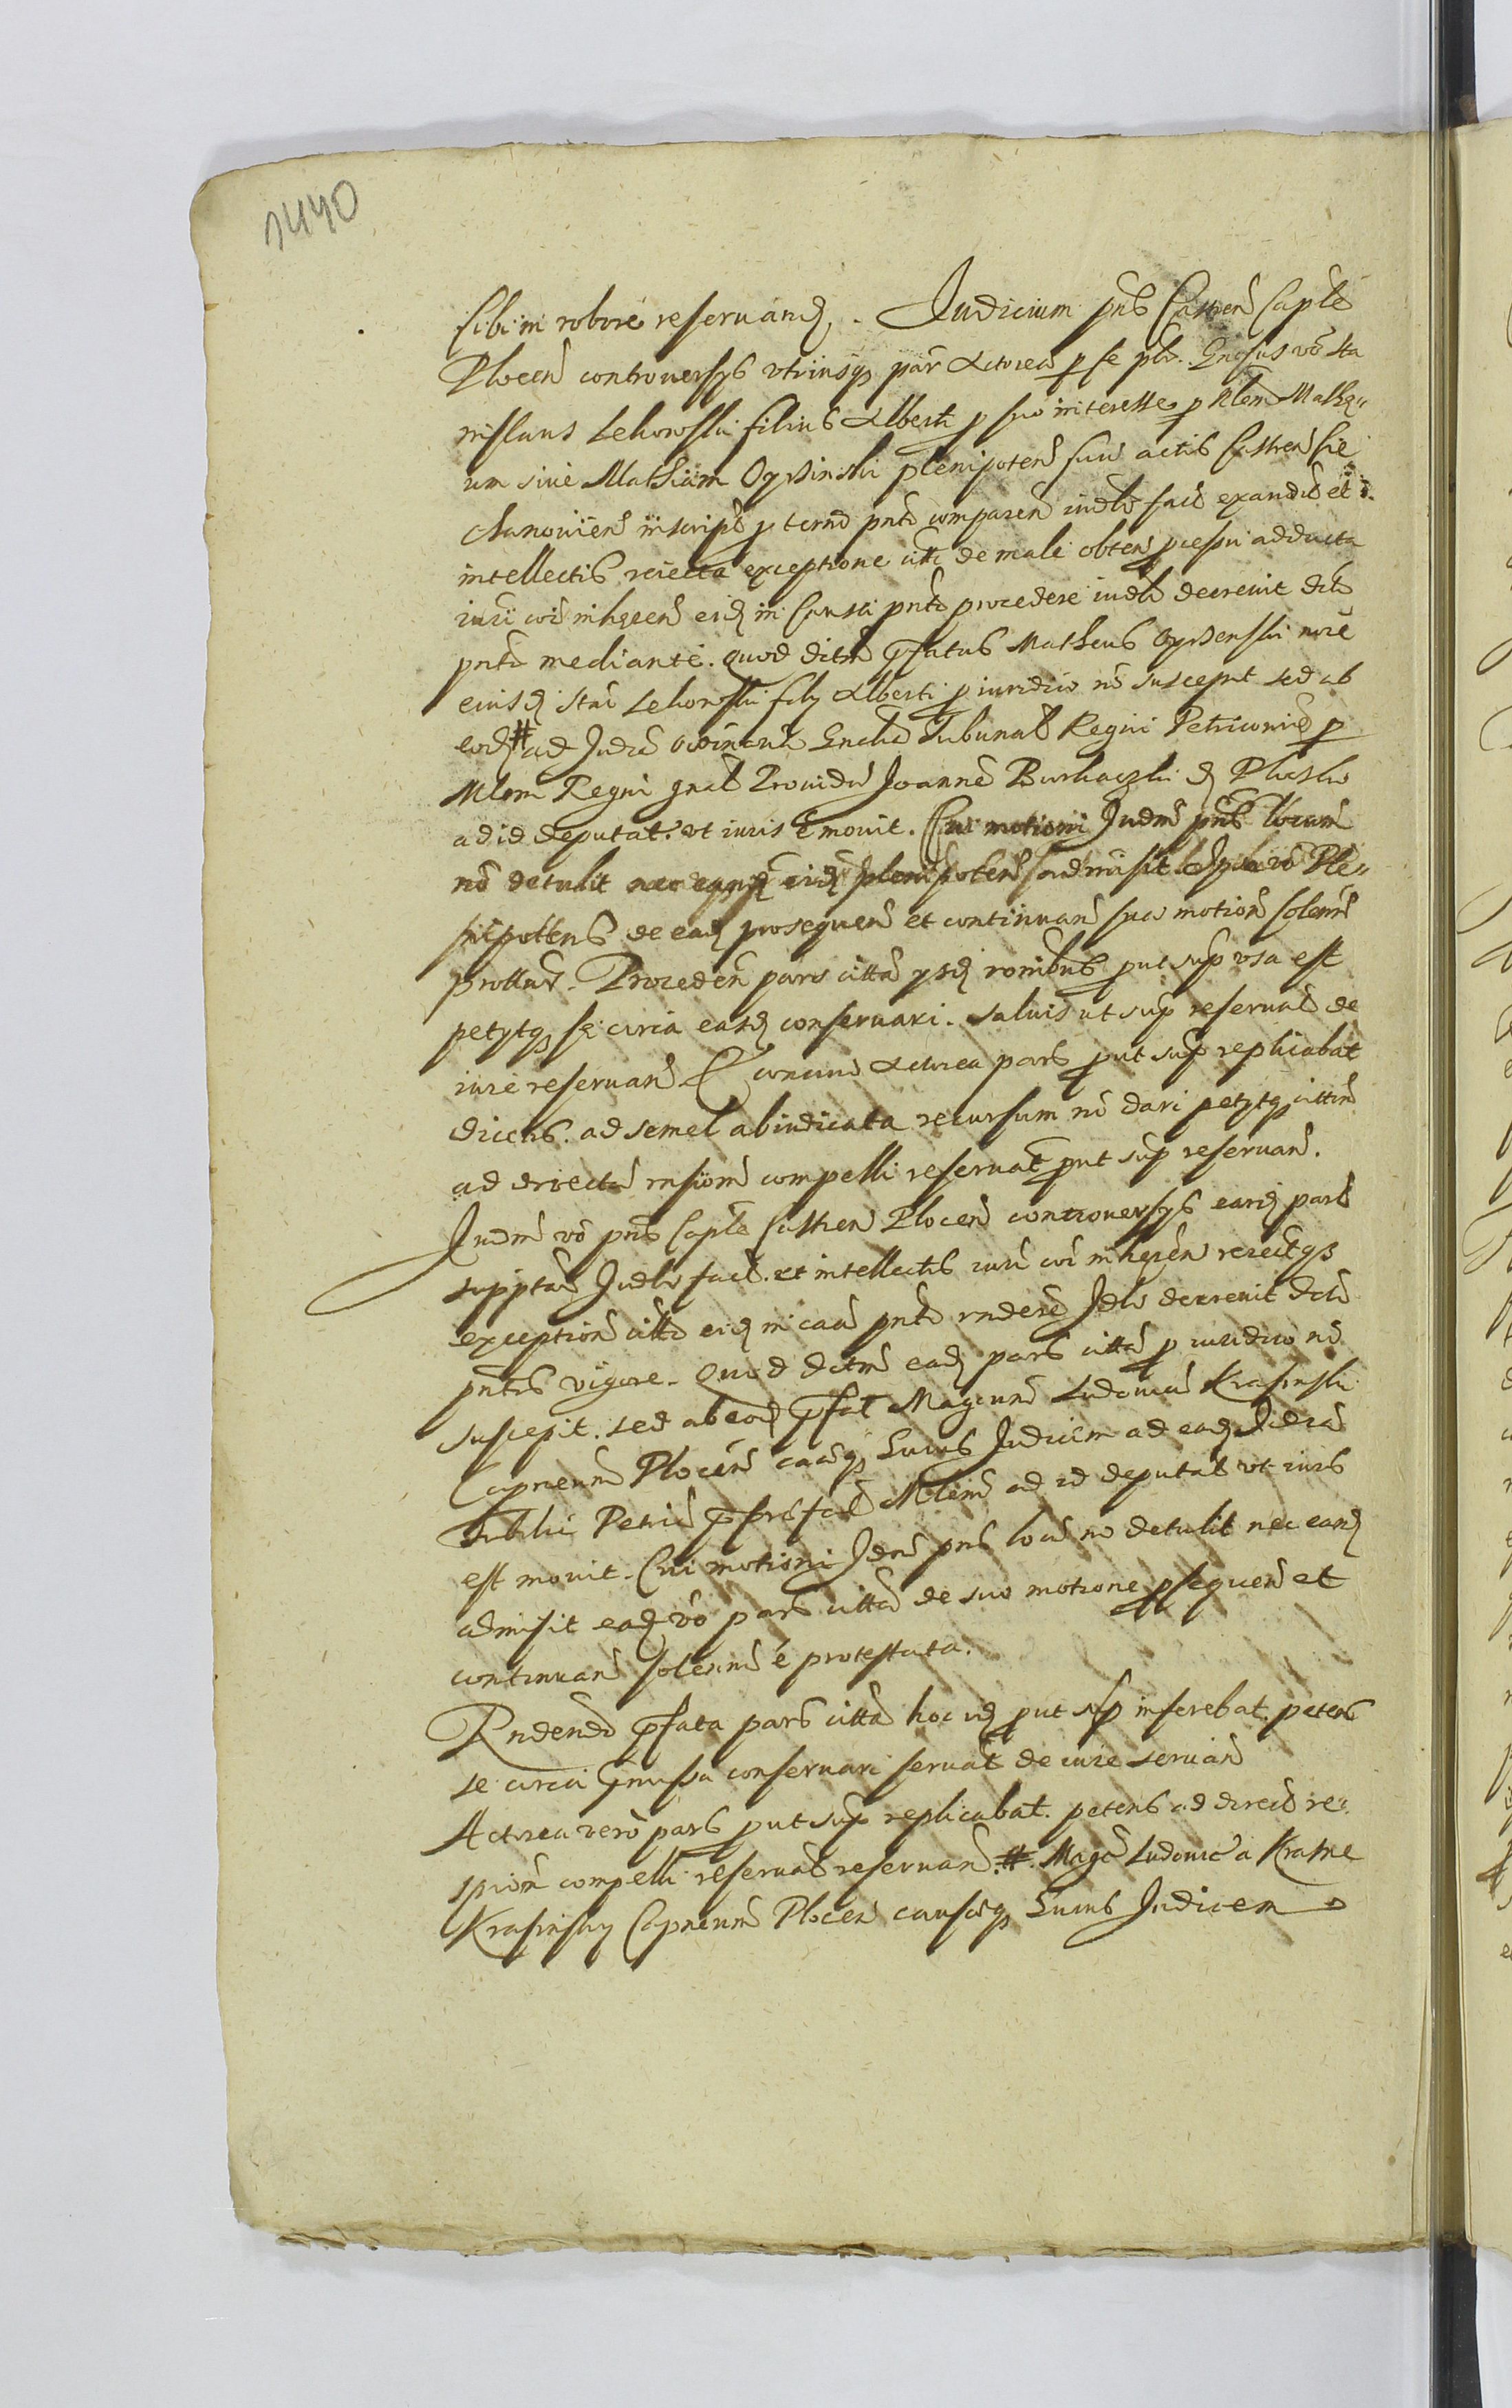 1440
sibi in robore reseruand. Judicium pns Castren Caplē
Plocen controuersys vtriusqs par Actorea p se pls. Gnosus vō Sta
nislaus Lekowski filius Alberti p suo interesse p Nlem Mathę-
um siue Mathiam Oyrzinski plenipoten suū actis Castren Cie
chanouien inscript p termō pntē comparen iudlr fact exaudit et
intellectis reiecta exceptione citti de male obten pcessu adducta
iuri coī inhaeren eid in causa pnti procedere iudlr decreuit dcto
pntē mediante. Quod dctm pfatus Matheus Oyrzenski noīe
eiusd Stai Lekowski fily Alberti p iuridico nō suscepit sed ab
eod # ad Judm ordinariū Gnale Tribunal Regni Petricouien p
Mlem Regni gnal Prouidū Joannē Burkaczki d Plocko
ad id deputat. vt iuris ē mouit. Cui motioni Judm pns locum
nō detulit nec eand eid plenipoten admisit Ipse vō Ple-
nipotens de ead prosequen et continuan sua motion solenr
prottur. Proceden pars citta ysd ronibus put sup vsa est
petytqs se circa easd conseruari. saluis ut sup reseruat de
iure reseruan E conuerō Actorea pars put sup replicabat
dicens. ad semel abiudicata recursum nō dari petytqs cittm
ad directā rnsionē compelli reseruat put sup reseruan.
Judm vō pns Caplē Castren Plocen controuersys eard part
supptar Judlr fact. et intellectis iuri coī inheren reiectqs
exception citti eid in causa pnti rndere Jdlr decreuit dcto
pntis vigore. Quod dctm ead pars citta p iuridico nō
suscepit. sed ab eod pfat Magcum Ludouicū Krasinski
Capneum Plocen causqs Suius Judicem ad ead Judicia
Tribli Petric p prsfat Mlem ad id deputat vt iuris
est mouit. Cui motioni Jdm pns locū nō detulit nec eand
admisit ead vō pars citta de suo motione psequen et
continuan solenr ē protestata.
Rndendo pfata pars citta hoc id put sup inferebat. petens
se circa pmissa conseruari seruat de iure seruan
Actorea verō pars put sup replicabat. petens ad direct re-
spion compelli reseruat reseruan. #. Magc Ludouic a Krasne
Krasinsky Capneum Plocen causarqs Suius Judicem